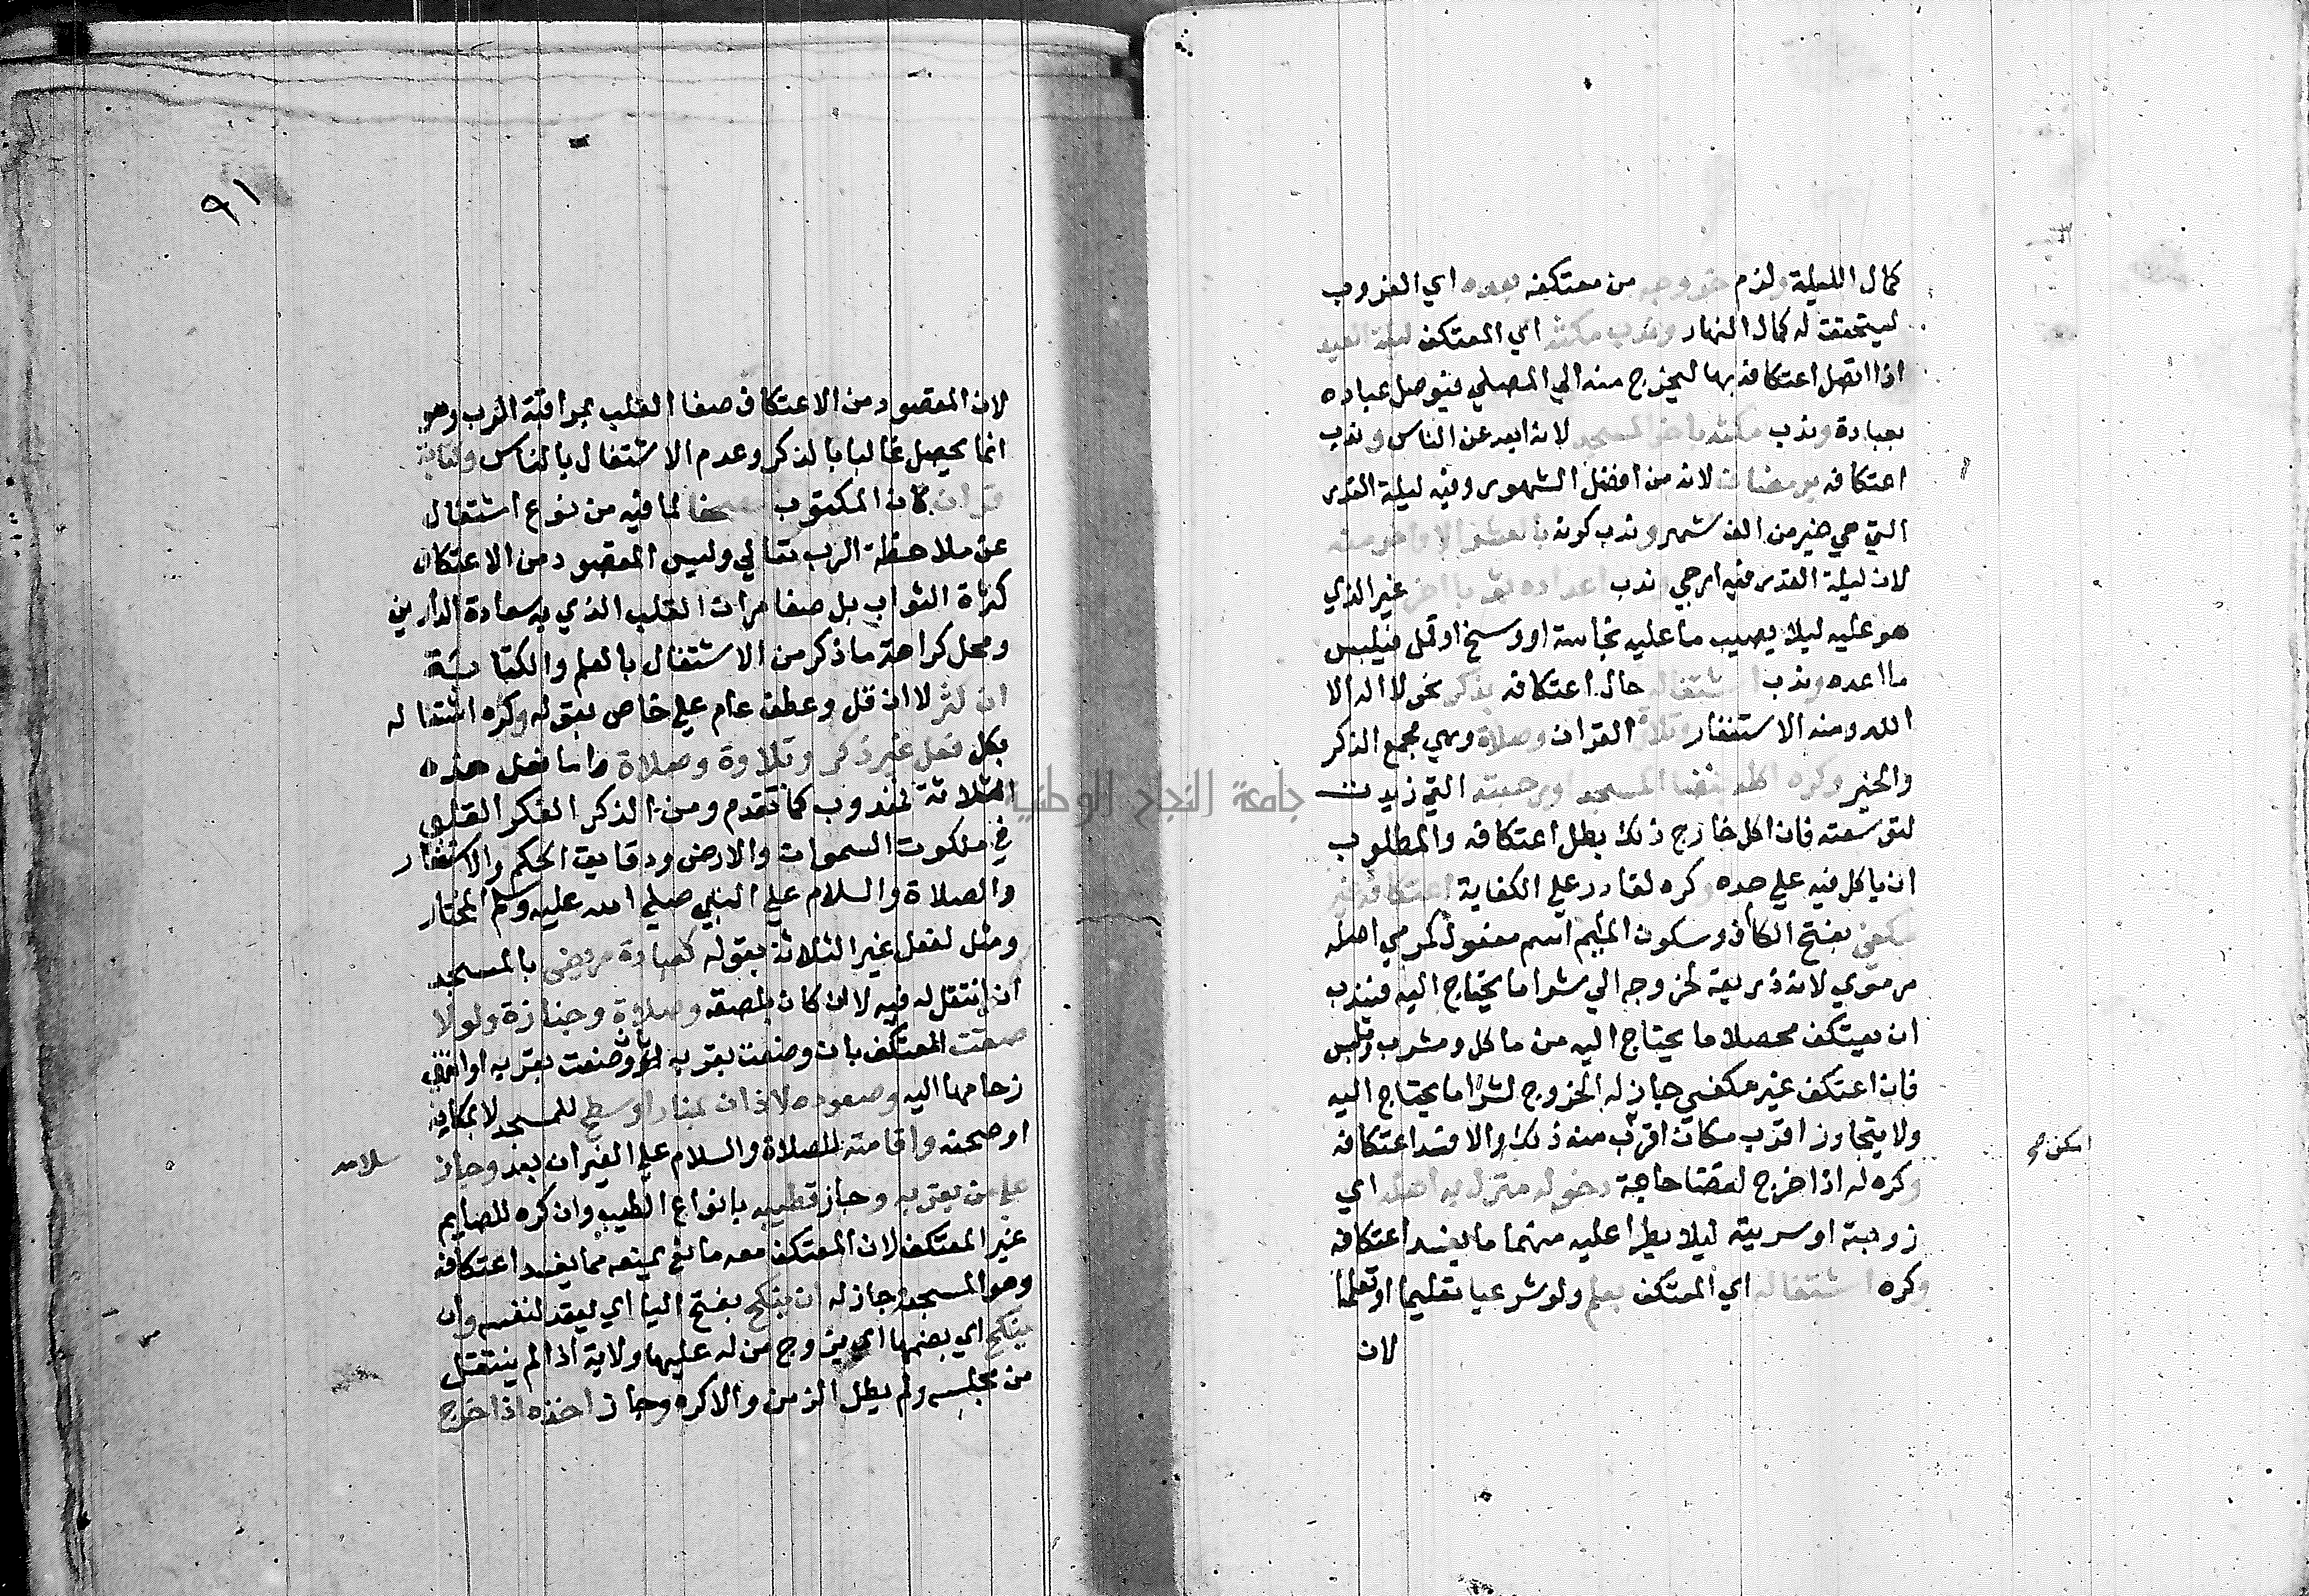 كمال الليلة ولزم خروجه من معتكفه بعده اي الغروب
ليتحقق له كمال النهار وندب مكثه اي المعتكف ليلة العيد
اذا اتصل اعتكافه بها ليخرج منه الي المصلي فيوصل عباده
بعبادة وندب مكثه باخر المسجد لانه ابعد عن الناس وندب
اعتكافه برمضان لانه من افضل الشهور وفيه ليلة القدر
التي هي خير من الف شهر وندب كونه بالعشر الاواخر منه
لان ليلة القدر فيه ارجي وندب اعداده ثوبا اخر غير الذي
هو عليه ليلا يصيب ما عليه نجاسة او وسخ او قمل فيلبس
ما اعده وندب اشتغاله حال اعتكافه بذكر نحو لا اله الا
الله ومنه الاستغفار وتلاوة القران وصلاة وهي مجمع الذكر
والخير وكره اكله بفضا المسجد او رحبته التي زيدت
لتوسعته فان اكل خارج ذلك بطل اعتكافه والمطلوب
ان ياكل فيه علي حده وكره لقادر علي الكفاية اعتكافه غير
مكفي بفتح الكاف وسكون الميم اسم مفعول كمرمي اصله
مرموي لانه ذريعة لخروجه الي شرا ما يحتاج اليه فيندب
ان يعتكف محصلا ما يحتاج اليه من ماكل ومشرب وملبس
فان اعتكف غير مكفي جاز له الخروج لشرا ما يحتاج اليه
ولا يتجاوز اقرب مكان اقرب منه ذلك والا فسد اعتكافه
امكن صح
وكره له اذا خرج لقضا حاجة دخوله منزل به اهله اي
زوجته او سريته ليلا يطرا عليه منهما ما يفسد اعتكافه
وكره اشتغاله اي المعتكف بعلم ولو شرعيا تعليما او تعلما
لان
٩١
لان المقصود من الاعتكاف صفا القلب بمراقبة الرب وهو
انما يحصل غالبا بالذكر وعدم الاشتغال بالناس وكتابة
قران كان المكتوب مصحفا لما فيه من نوع اشتغال
عن ملاحظة الرب تعالي وليس المقصود من الاعتكاف
كثرة الثواب بل صفا مرات القلب الذي به سعادة الدارين
ومحل كراهة ما ذكر من الاشتغال بالعلم والكتابة
ان كثر لا ان قل وعطف عام علي خاص بقوله وكره اشتغاله
بكل فعل غير ذكر وتلاوة وصلاة واما فعل هذه
الثلاثة فمندوب كما تقدم ومن الذكر الفكر القلبي
في ملكوت السموات والارض ودقايق الحكم والاستغفار
والصلاة والسلام علي النبي صلي الله عليه وسلم المختار
ومثل لفعل غير الثلاثة بقوله كعيادة مريض بالمسجد
ان انتقل له فيه لا ان كان بلصقه وصلاة وجنازة ولو لا
صقت المعتكف بان وضعت بقربه او وضعت بقربه او انتهي
زحامها اليه وصعوده لاذان بمنار او سطح للمسجد لا بمكانه
او صحنه واقامته للصلاة والسلام علي الغير ان بعد وجاز
سلامه
علي من بقربه وجاز تطيبه بانواع الطيب وان كره للصايم
غير المعتكف لان المعتكف معه مانع يمنعه مما يفسد اعتكافه
وهو المسجد وجاز له ان ينكح بفتح اليا اي يعقد لنفسه وان
ينكح اي بضمها اي يزوج من له عليها ولاية اذا لم ينتقل
من مجلسه ولم يطل الزمن والا كره وجاز اخذه اذا خرج
جامعة النجاح الوطنية